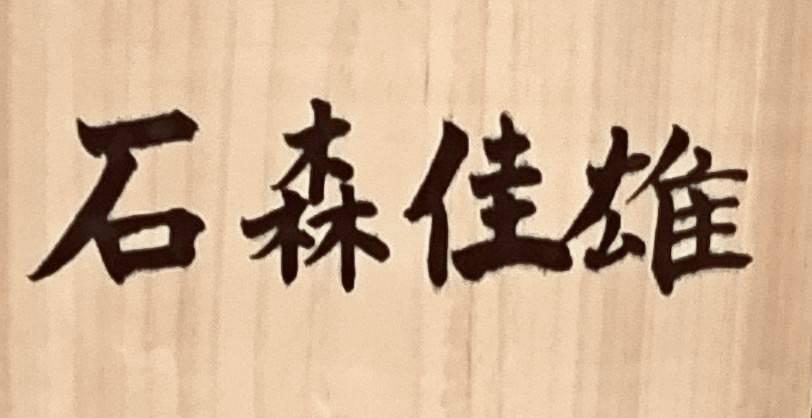 石森佳雄